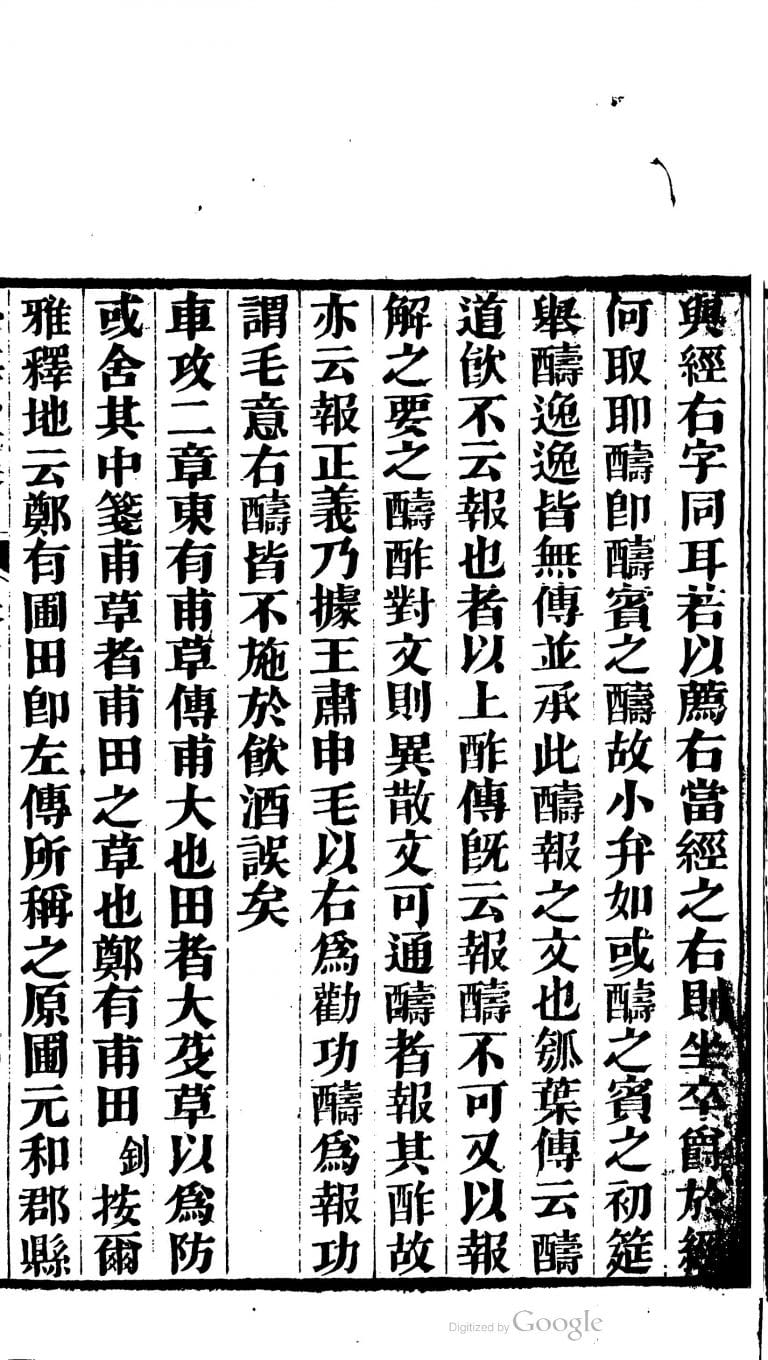 與經右字同耳若以薦右當經之右則坐卒爵於經
何取耶醻卽醻賓之醻故小弁如或醻之賓之初筵
舉醻逸逸皆無傳並承此醻報之文也瓠葉傳云醻
道飮不云報也者以上酢傳旣云報醻不可又以報
解之要之醻酢對文則異散文可通醻者報其酢故
亦云報正義乃據王肅申毛以右爲勸功醻爲報功
謂毛意右醻皆不施於飮酒誤矣
車攻二章東有甫草傳甫大也田者大芟草以爲防
或舍其中箋甫草者甫田之草也鄭有甫田 釗 按爾
雅釋地云鄭有圃田卽左傳所稱之原圃元和郡縣
Digitized by Google